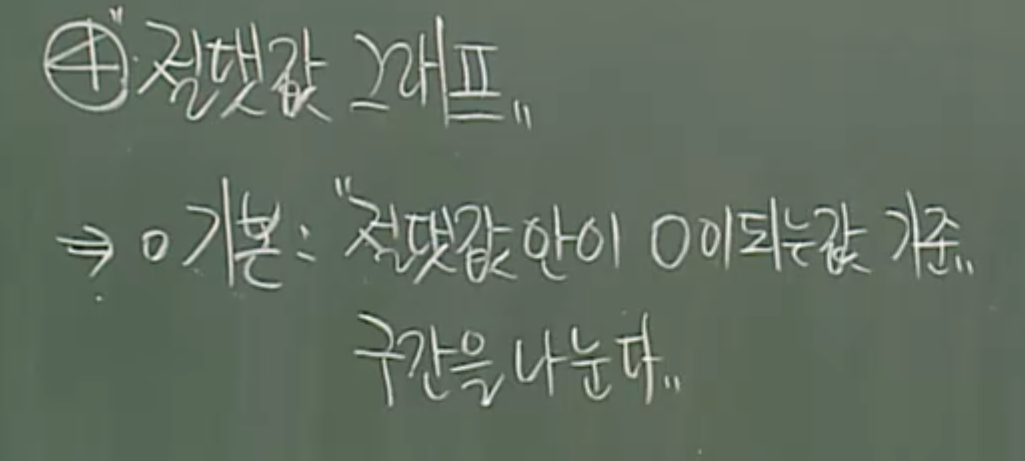 ④ "절댓값 그래프"
⇒ ○ 기본 : "절댓값 안이 0이 되는 값 기준"
구간을 나눈다."